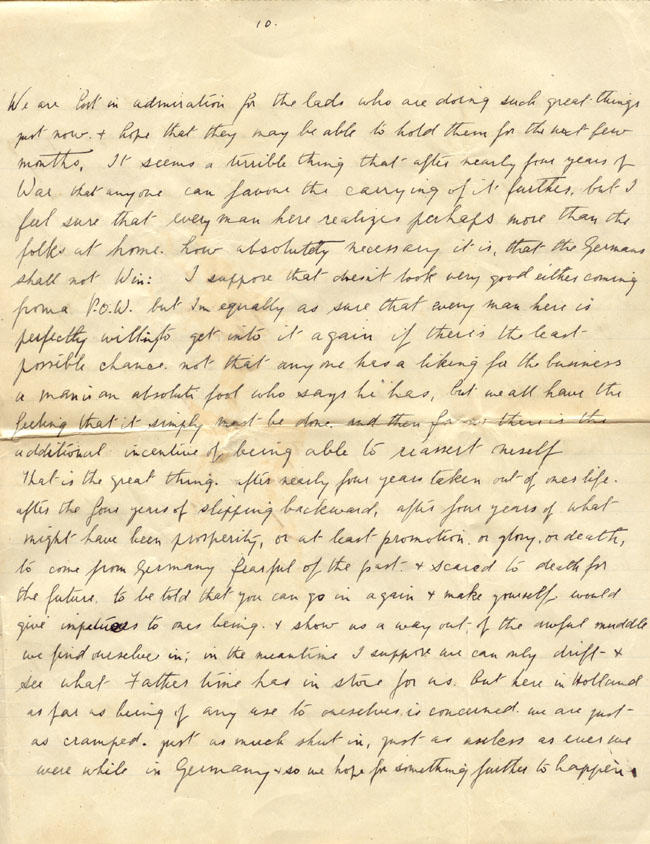 10.
We are lost in admiration for the lads who are doing such great things
just now. & hope that they may be able to hold them for the next few
months. It seems a terrible thing that after nearly four years of
War that anyone can favour the carrying of it further, but I
feel sure that every man here realizes perhaps more than the
folks at home. how absolutely necessary it is, that the Germans
shall not Win: I suppose that doesn't look very good either coming
from a P.O.W. but I'm equally as sure that every man here is
perfectly willing to get into it again if there is the least
possible chance. not that anyone has a liking for the business
a man is an absolute fool who says he has, but we all have the
feeling that it simply must be done. and then for us there is the
additional incentive of being able to reassert oneself
That is the great thing. after nearly four years taken out of ones life.
after the four years of slipping backward, after four years of what
might have been prosperity, or at least promotion. or glory. or death,
to come from Germany fearful of the past & scared to death for
the future. to be told that you can go in again & make yourself. would
give impetus to ones being. & show us a way out of the awful muddle
we find ourselve in; in the meantime I suppose we can only drift &
see what Father time has in store for us. But here in Holland
as far as being of any use to ourselves is concerned we are just
as cramped. just as much shut in, just as useless as ever we
were while in Germany & so we hope for something further to happen.